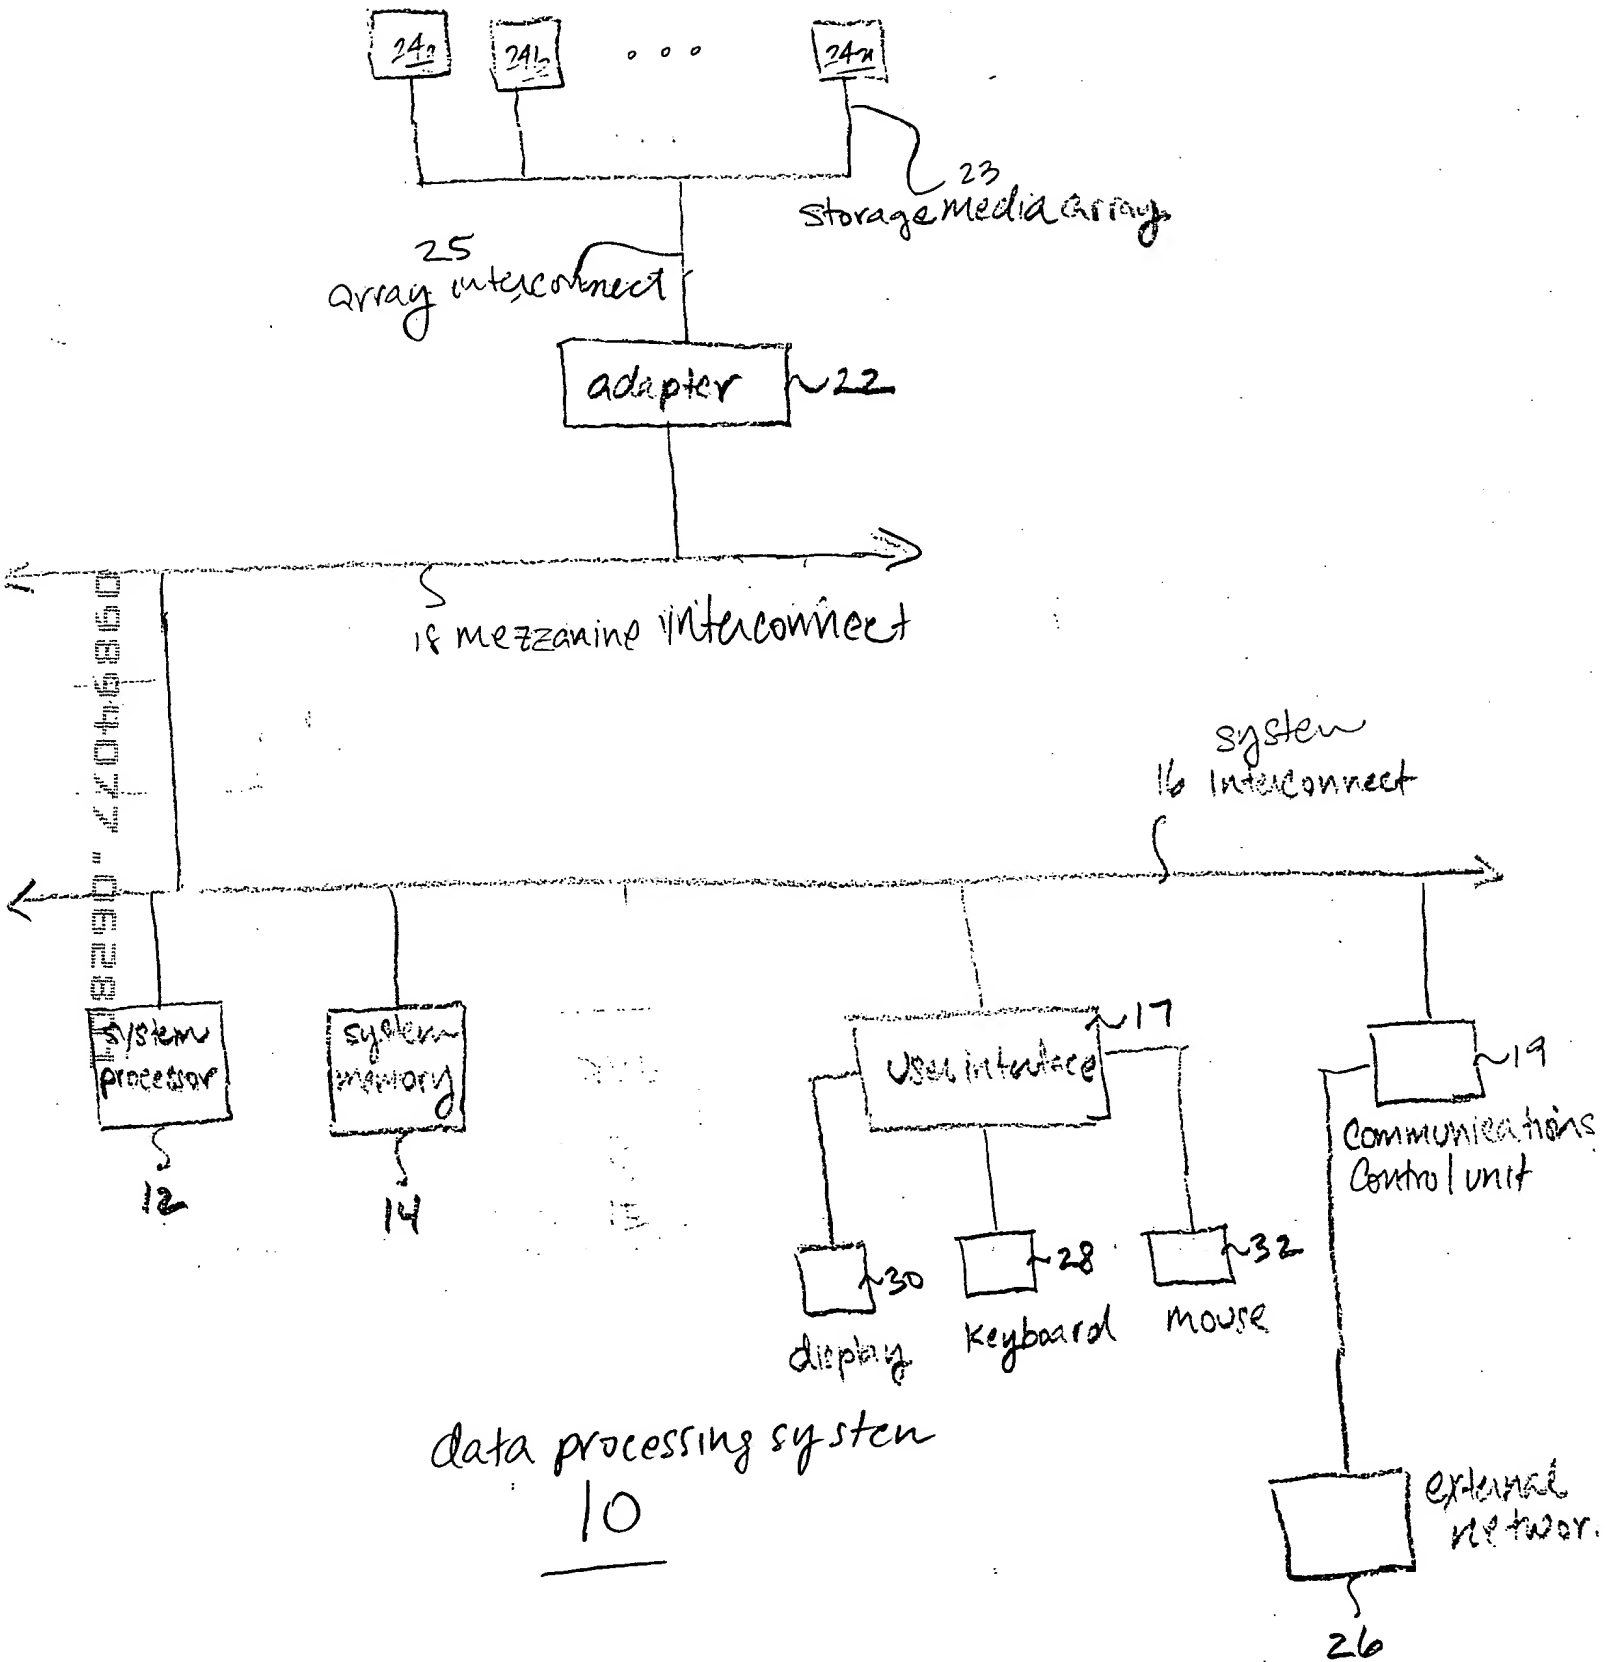 24a 24b 24n
23
Storage media array
25
array interconnect
adapter 22
18 mezzanine interconnect
system
16 interconnect
system
processor
12
system
memory
14
user interface 17
19
communications
control unit
30
display
28
keyboard
32
mouse
data processing system
10
external
networ.
26